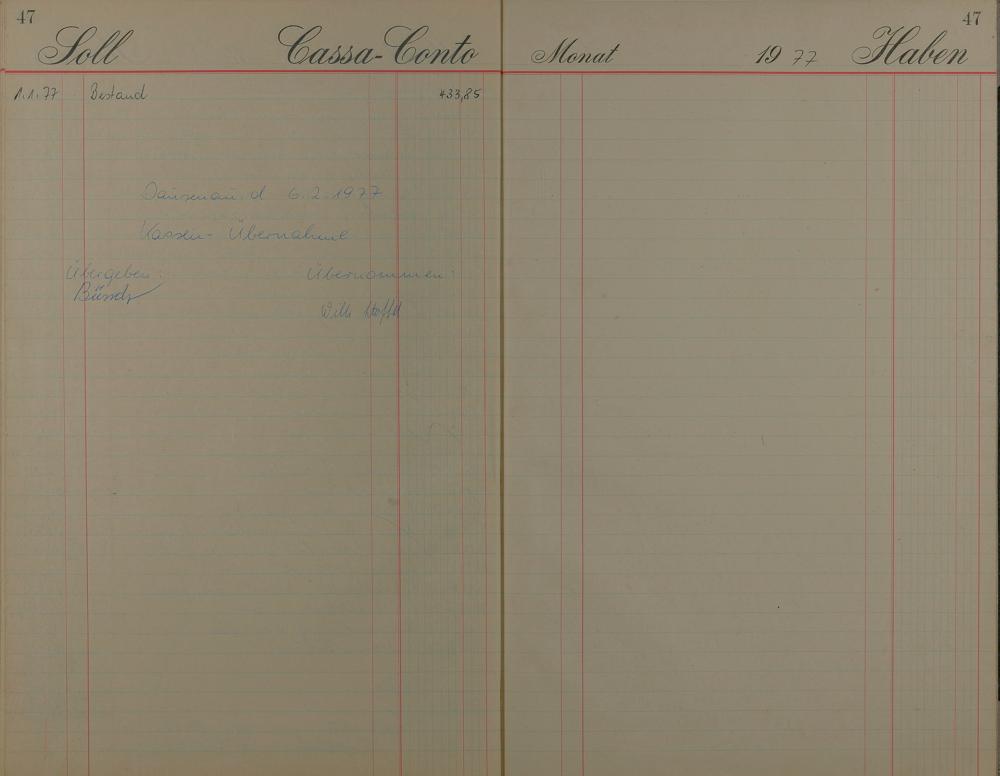 47
Soll Cassa-Conto
1.1.77 Bestand 433,85
Dausenau, d 6.2.1977
Kassen-Übernahme
Übergeben: Übernommen:
Büsch
Willi
47
Monat 1977 Haben